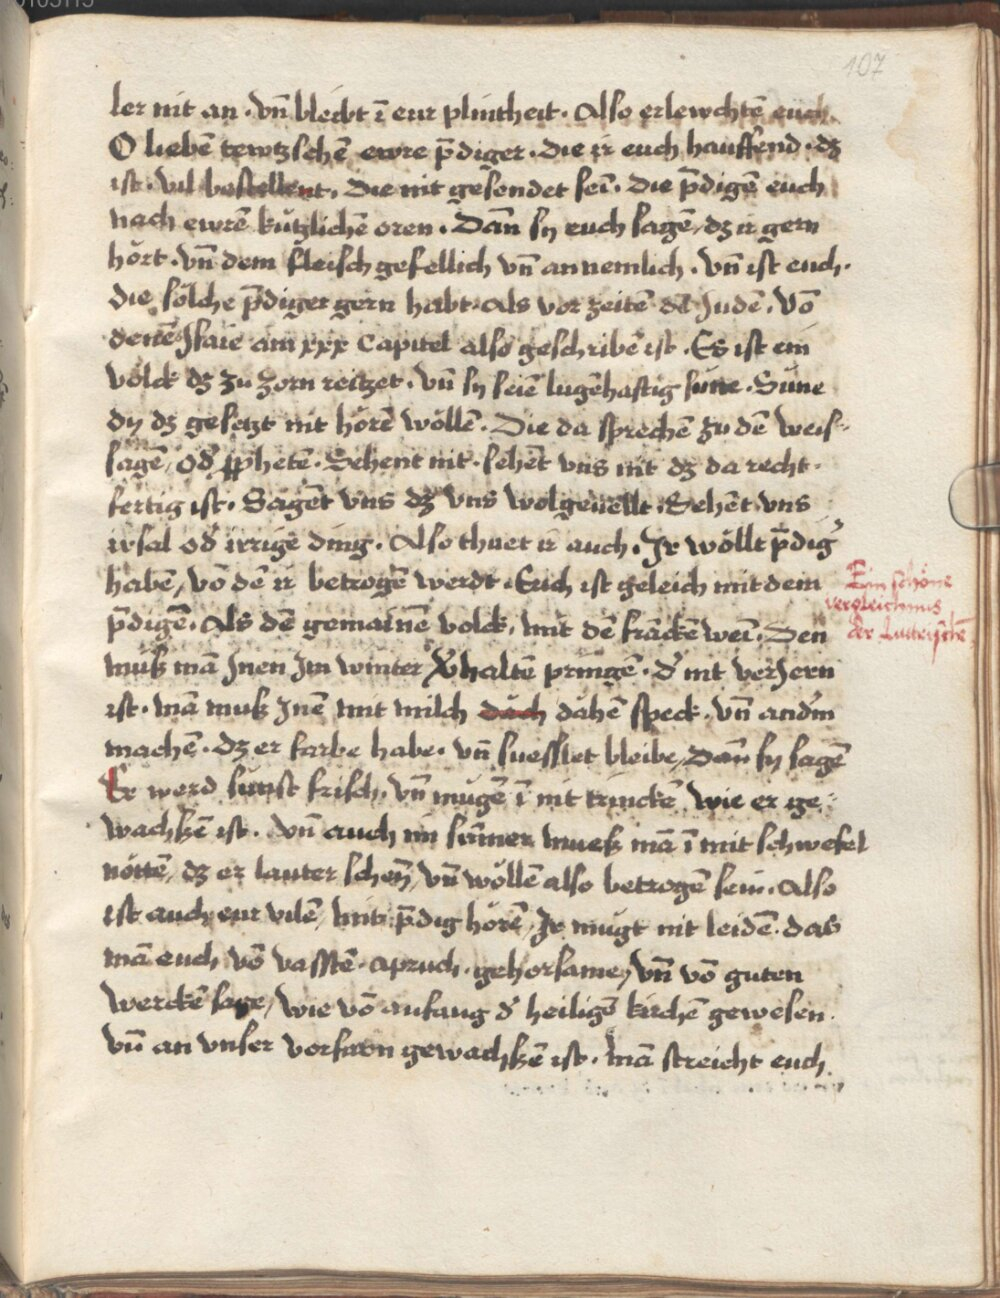 107
ler nit an · vn̄ bleibt ī eur plintheit · Also erlewchtē euch
O liebē tewtzschē ewre p̄diger · die ir euch hauffend · dz
ist · vil bestellent, die nit gesendet sei͞ · die p̄digē euch
nach ewrē kützlichē oren · Dan̄ sy euch sagē, dz ir gern
hört · vn̄ dem fleisch gefellich vn̄ annemlich · vn̄ ist euch ·
die sölche p̄diger gern habt · als vor zeitē dē Judē · Vō
denē Isaie am xxx Capitel also geschribē ist · Es ist ein
völck dz zu zorn reitzet · vn̄ sy seiē lugēhaftig süne · Süne
dy dz gesetzt nit hörē wöllē · Die da sprechē zu dē weis=
sagē, od' ꝓphetē · Sehent nit · sehēt vns nit dz da recht ·
fertig ist · Sagēt vns dz vns wolgeuellt · Sehēt vns
irsal od' irrige ding · Also thuet ir auch · Ir wöllt p̄dig'
habē, vō dē ir betrogē werdt · Euch ist geleich mit dem
p̄digē · Als dē gemainē volck, mit dē franckē wei͞ · Den
muß mā Inen Im winter haltē pringē · d' nit verJern
ist · mā muß Inē mit milch dach dähē speck · vn̄ and'm
machē · dz er farbe habe · vn̄ suesslet bleibe, Dan̄ sy sagē
Er werd sunst frisch · vn̄ mügē ī nit trinckē wie er ge=
wachßē ist · vn̄ auch im sum̄er mueß mā ī mit schwefel
nöttē, dz er lauter schey͞, vn̄ wöllē also betrogē sein · Also
ist auch eur vilē, mit p̄dig hörē, Ir mügt nit leidē · das
mā euch vō vasstē · apruch · gehorsame, vn̄ vō guten
werckē sage, wie vō anfang d' heiligē kirchē gewesen ·
vn̄ an vnser vorfarn gewachßē ist · mā streicht euch
Ein schöne
vergleichnus
der Lutterischē